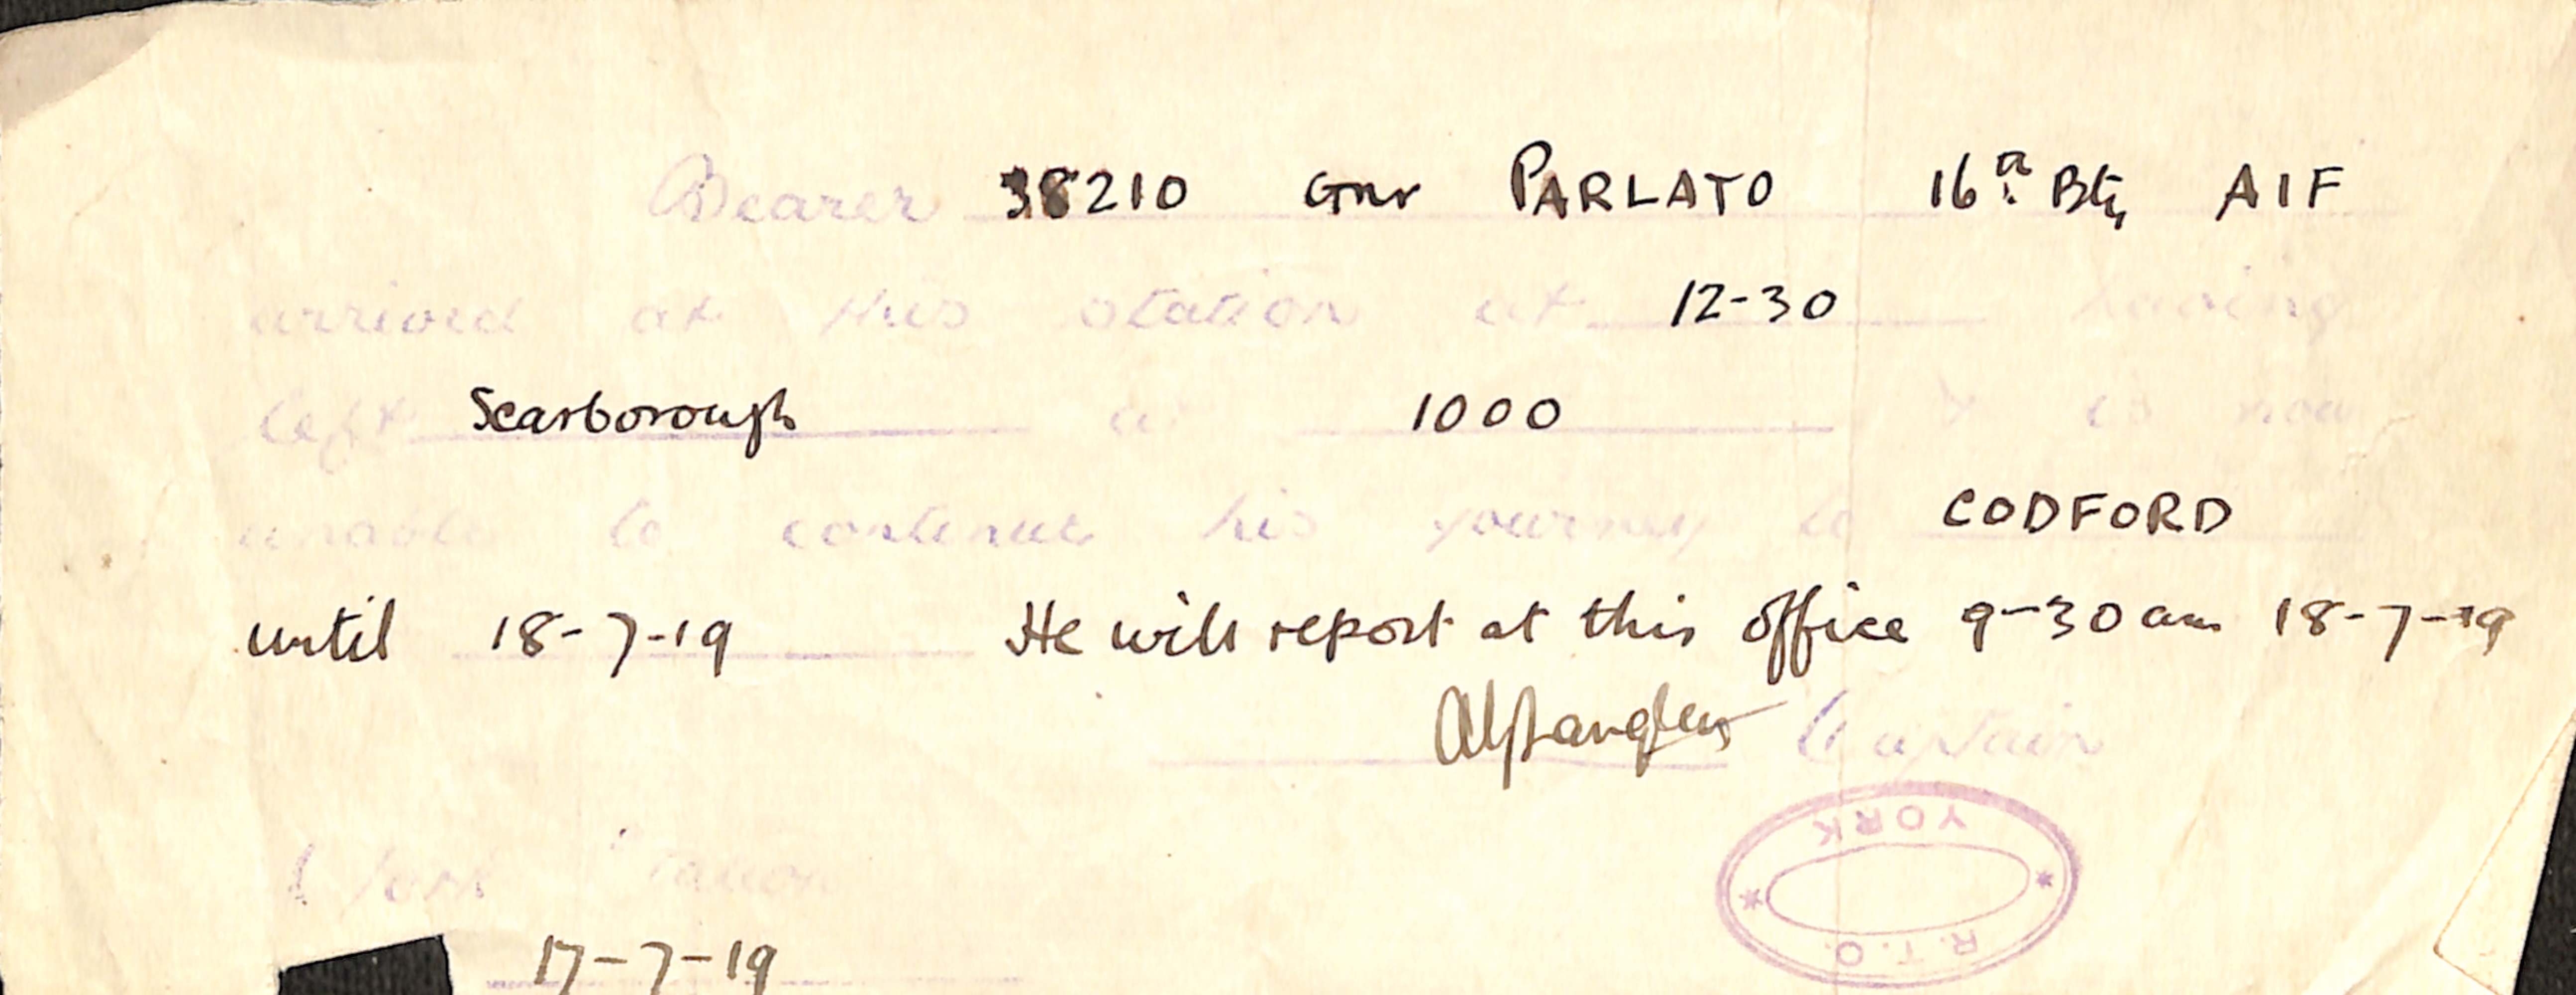 Bearer 38210 Gnr PARLATO 16th Bty AIF
arrived at this station at 12-30 having
left Scarborough at 1000 & is now
unable to continue his journey to CODFORD
until 18-7-19 He will report at this office 9-30 am 18-7-19
Captain
YORK
R.T.O.
York Station
17-7-19